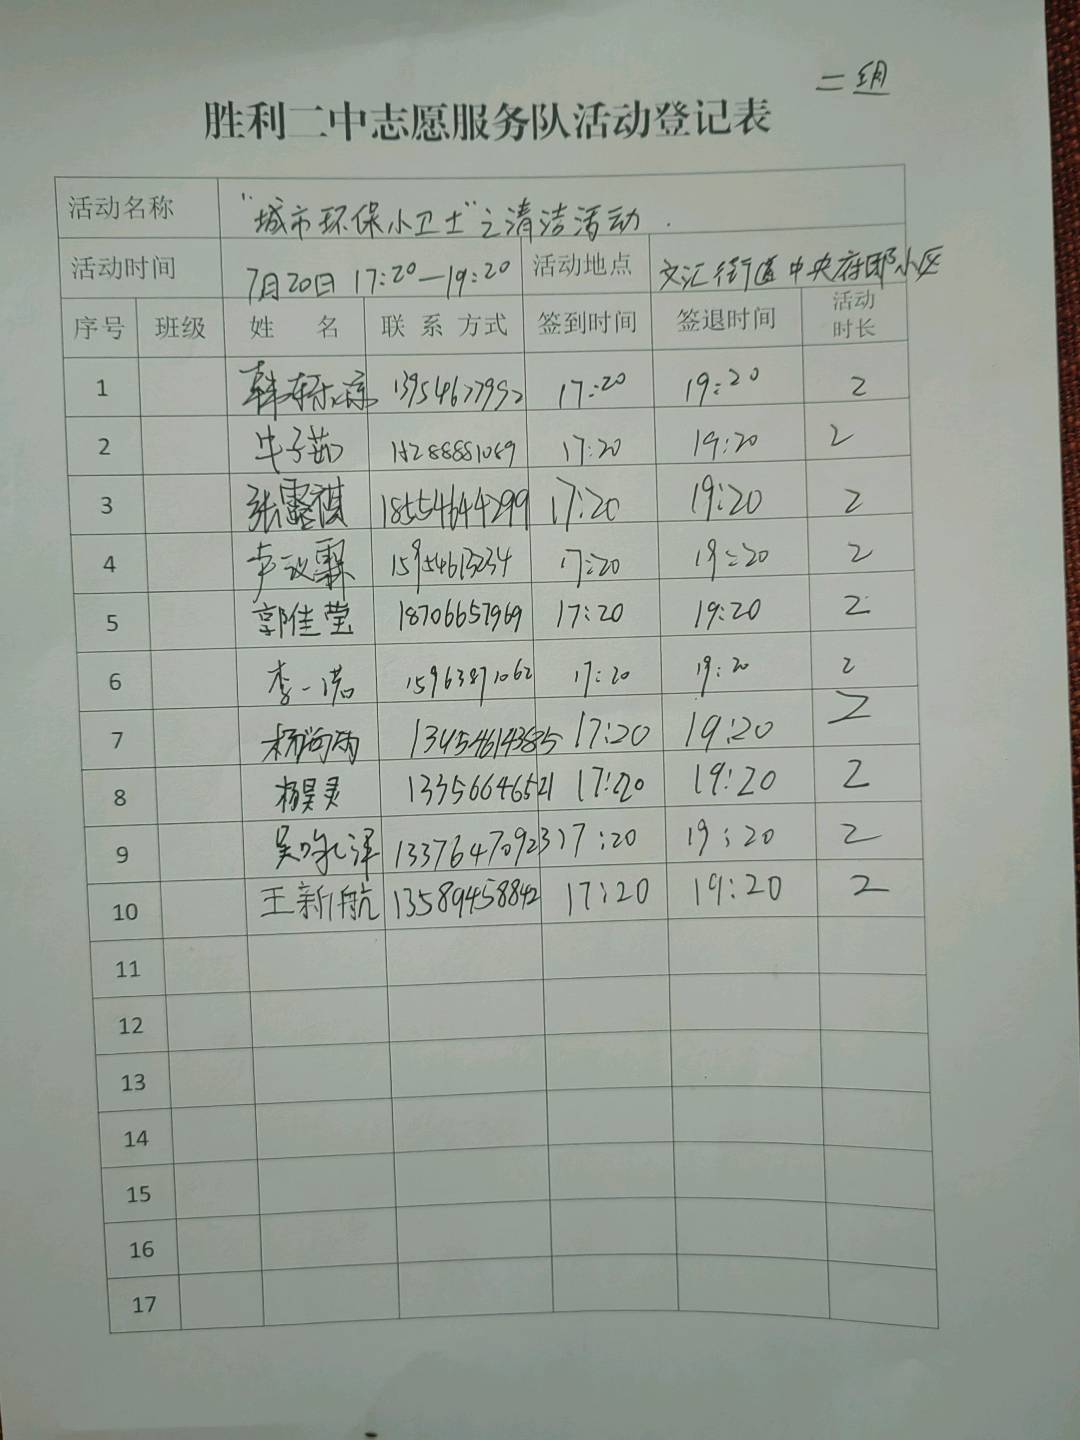 二组
胜利二中志愿服务队活动登记表
活动名称 “城市环保小卫士”之清洁活动.
活动时间 7月20日 17:20—19:20 活动地点 文汇街道中央府邸小区
序号 班级 姓 名 联系方式 签到时间 签退时间 活动时长
1 17:20 19:20 2
2 牛子茹 17:20 19:20 2
3 张露祺 18554644299 17:20 19:20 2
4 15954613234 17:20 19:20 2
5 郭佳莹 18706657969 17:20 19:20 2
6 李一诺 15963871062 17:20 19:20 2
7 13454614385 17:20 19:20 2
8 杨昊灵 13356646521 17:20 19:20 2
9 13376470923 17:20 19:20 2
10 王新航 13589458842 17:20 19:20 2
11
12
13
14
15
16
17